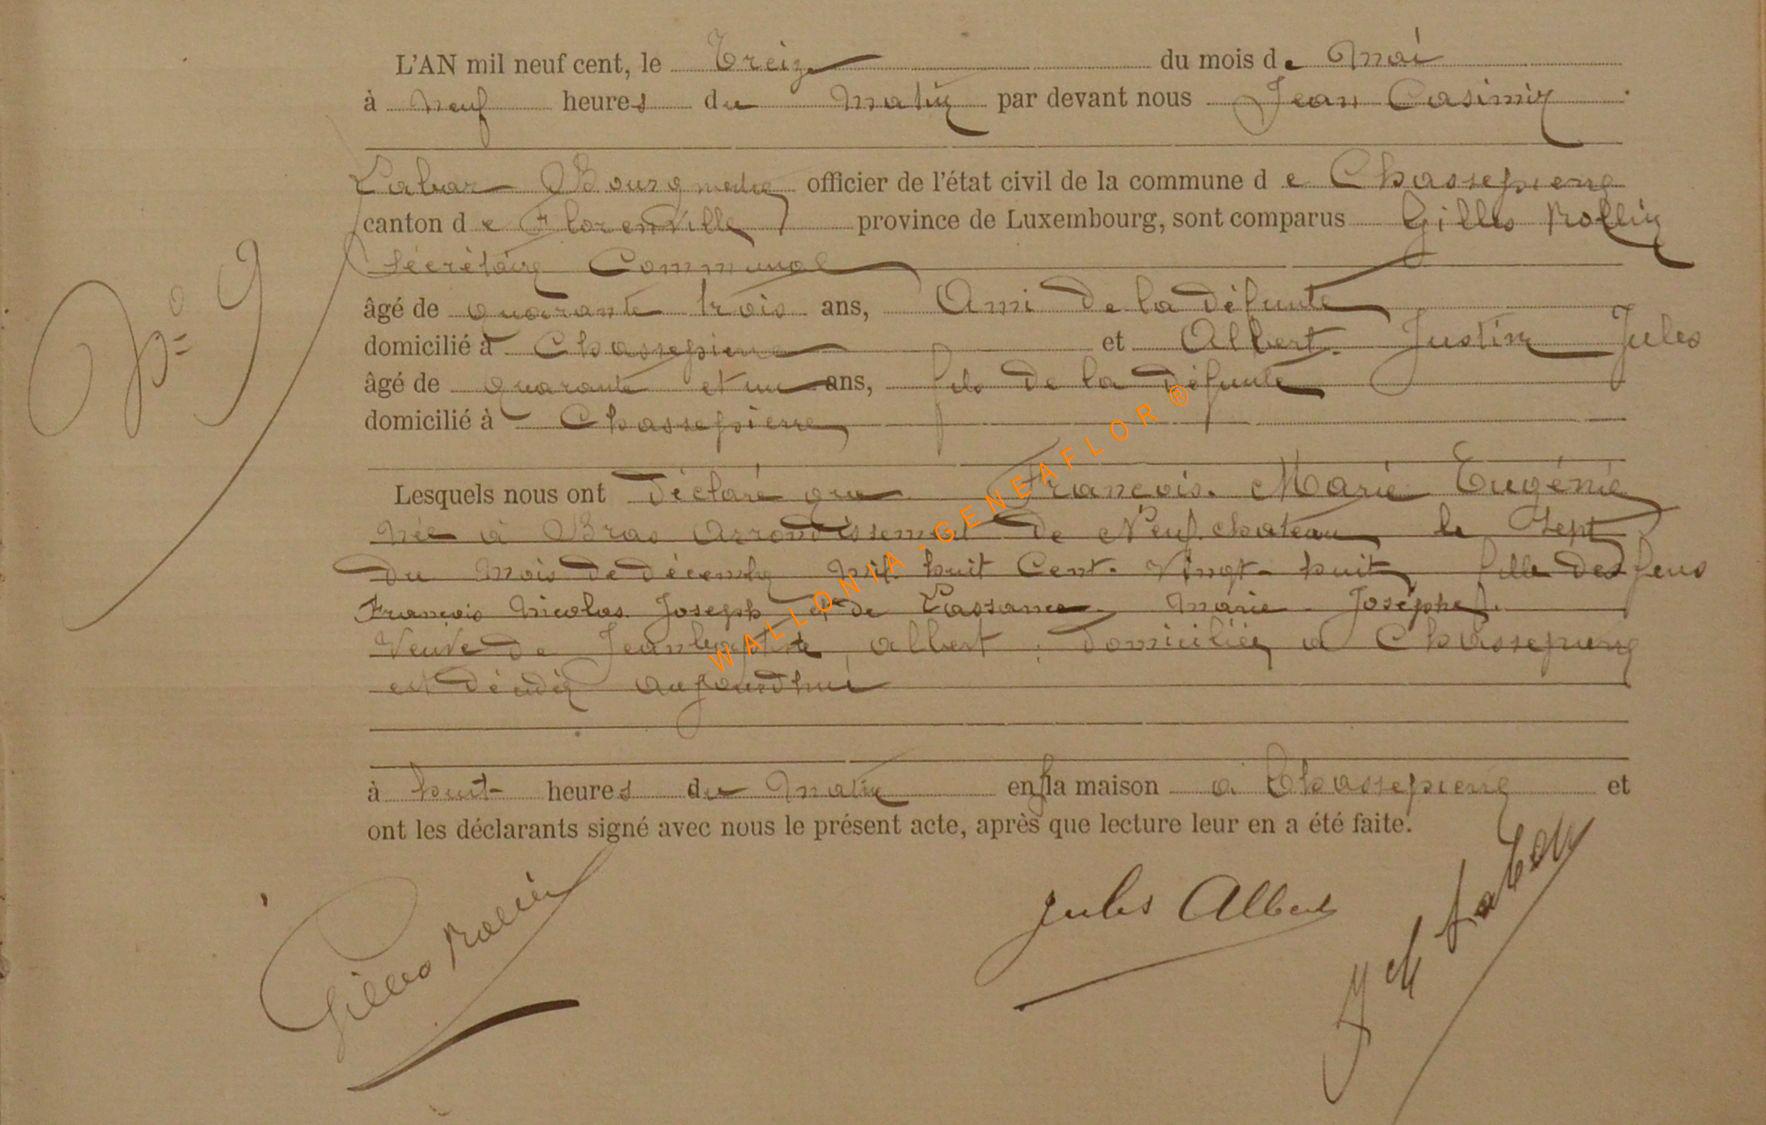 L'AN mil neuf cent, le Treize du mois de Mai
à neuf heures du Matin par devant nous Jean Casimir
Bourgmestre officier de l'état civil de la commune de Chassepierre
canton de Florenville province de Luxembourg, sont comparus Gilles Rollin
Secrétaire Communal
N° 9
âgé de quarante trois ans, Ami de la défunte
domicilié à Chassepierre et Albert Justin Jules
âgé de quarante et un ans, fils de la défunte
domicilié à Chassepierre
Lesquels nous ont déclaré que François Marie Eugénie
née à Bras arrondissement de Neufchateau le Sept
du mois de décembre mil huit Cent Vingt huit fille des feus
François Nicolas Joseph et de Marie Josèphe
Veuve de Jeanbaptiste albert domiciliée à Chassepierre
est décédée aujourdhui
à huit heures du Matin en sa maison à Chassepierre et
ont les déclarants signé avec nous le présent acte, après que lecture leur en a été faite.
Gilles Rollin
Jules Albert
WALLONIA-GENEAFLOR ®